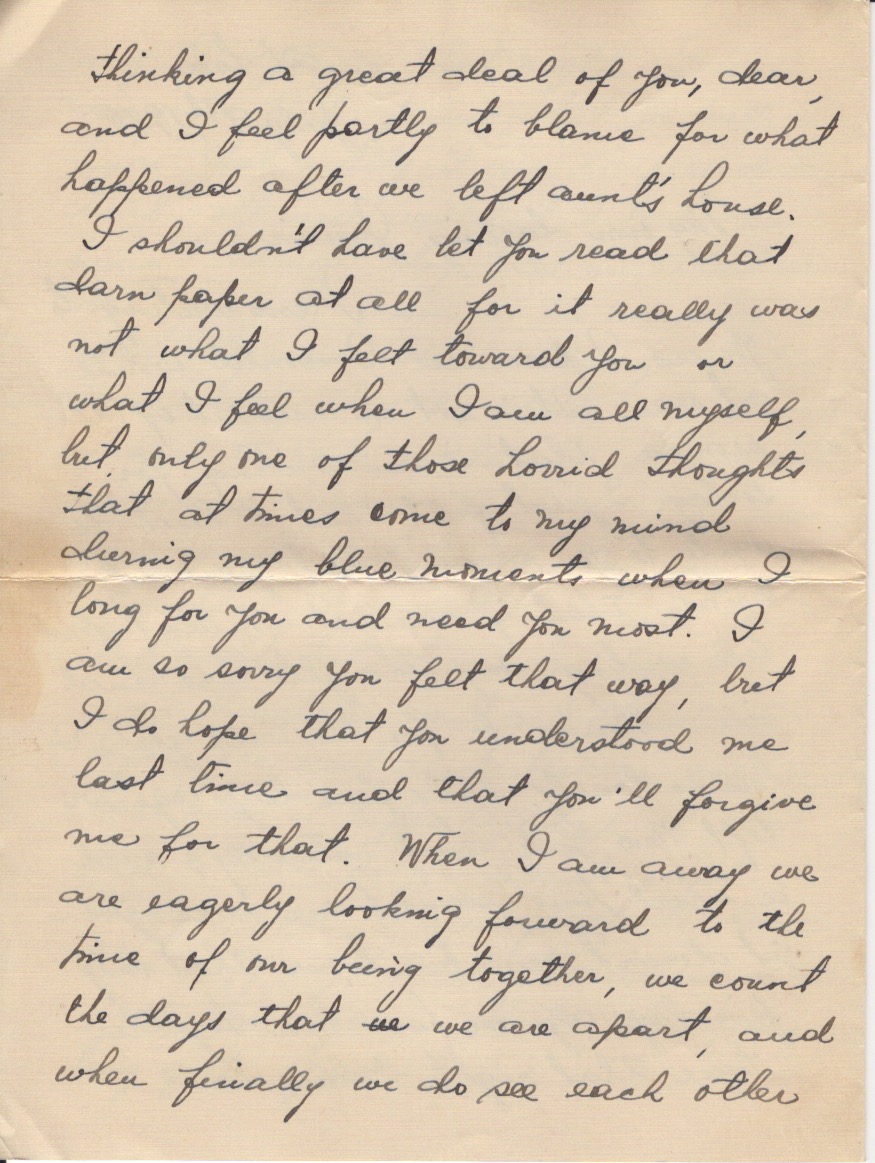 thinking a great deal of you, dear,
and I feel partly to blame for what
happened after we left aunt's house.
I shouldn't have let you read that
darn paper at all for it really was
not what I felt toward you or
what I feel when I am all myself,
but only one of those horrid thoughts
that at times come to my mind
during my blue moments when I
long for you and need you most. I
am so sorry you felt that way, but
I do hope that you understood me
last time and that you'll forgive
me for that. When I am away we
are eagerly looking forward to the
time of our being together, we count
the days that we we are apart, and
when finally we do see each other